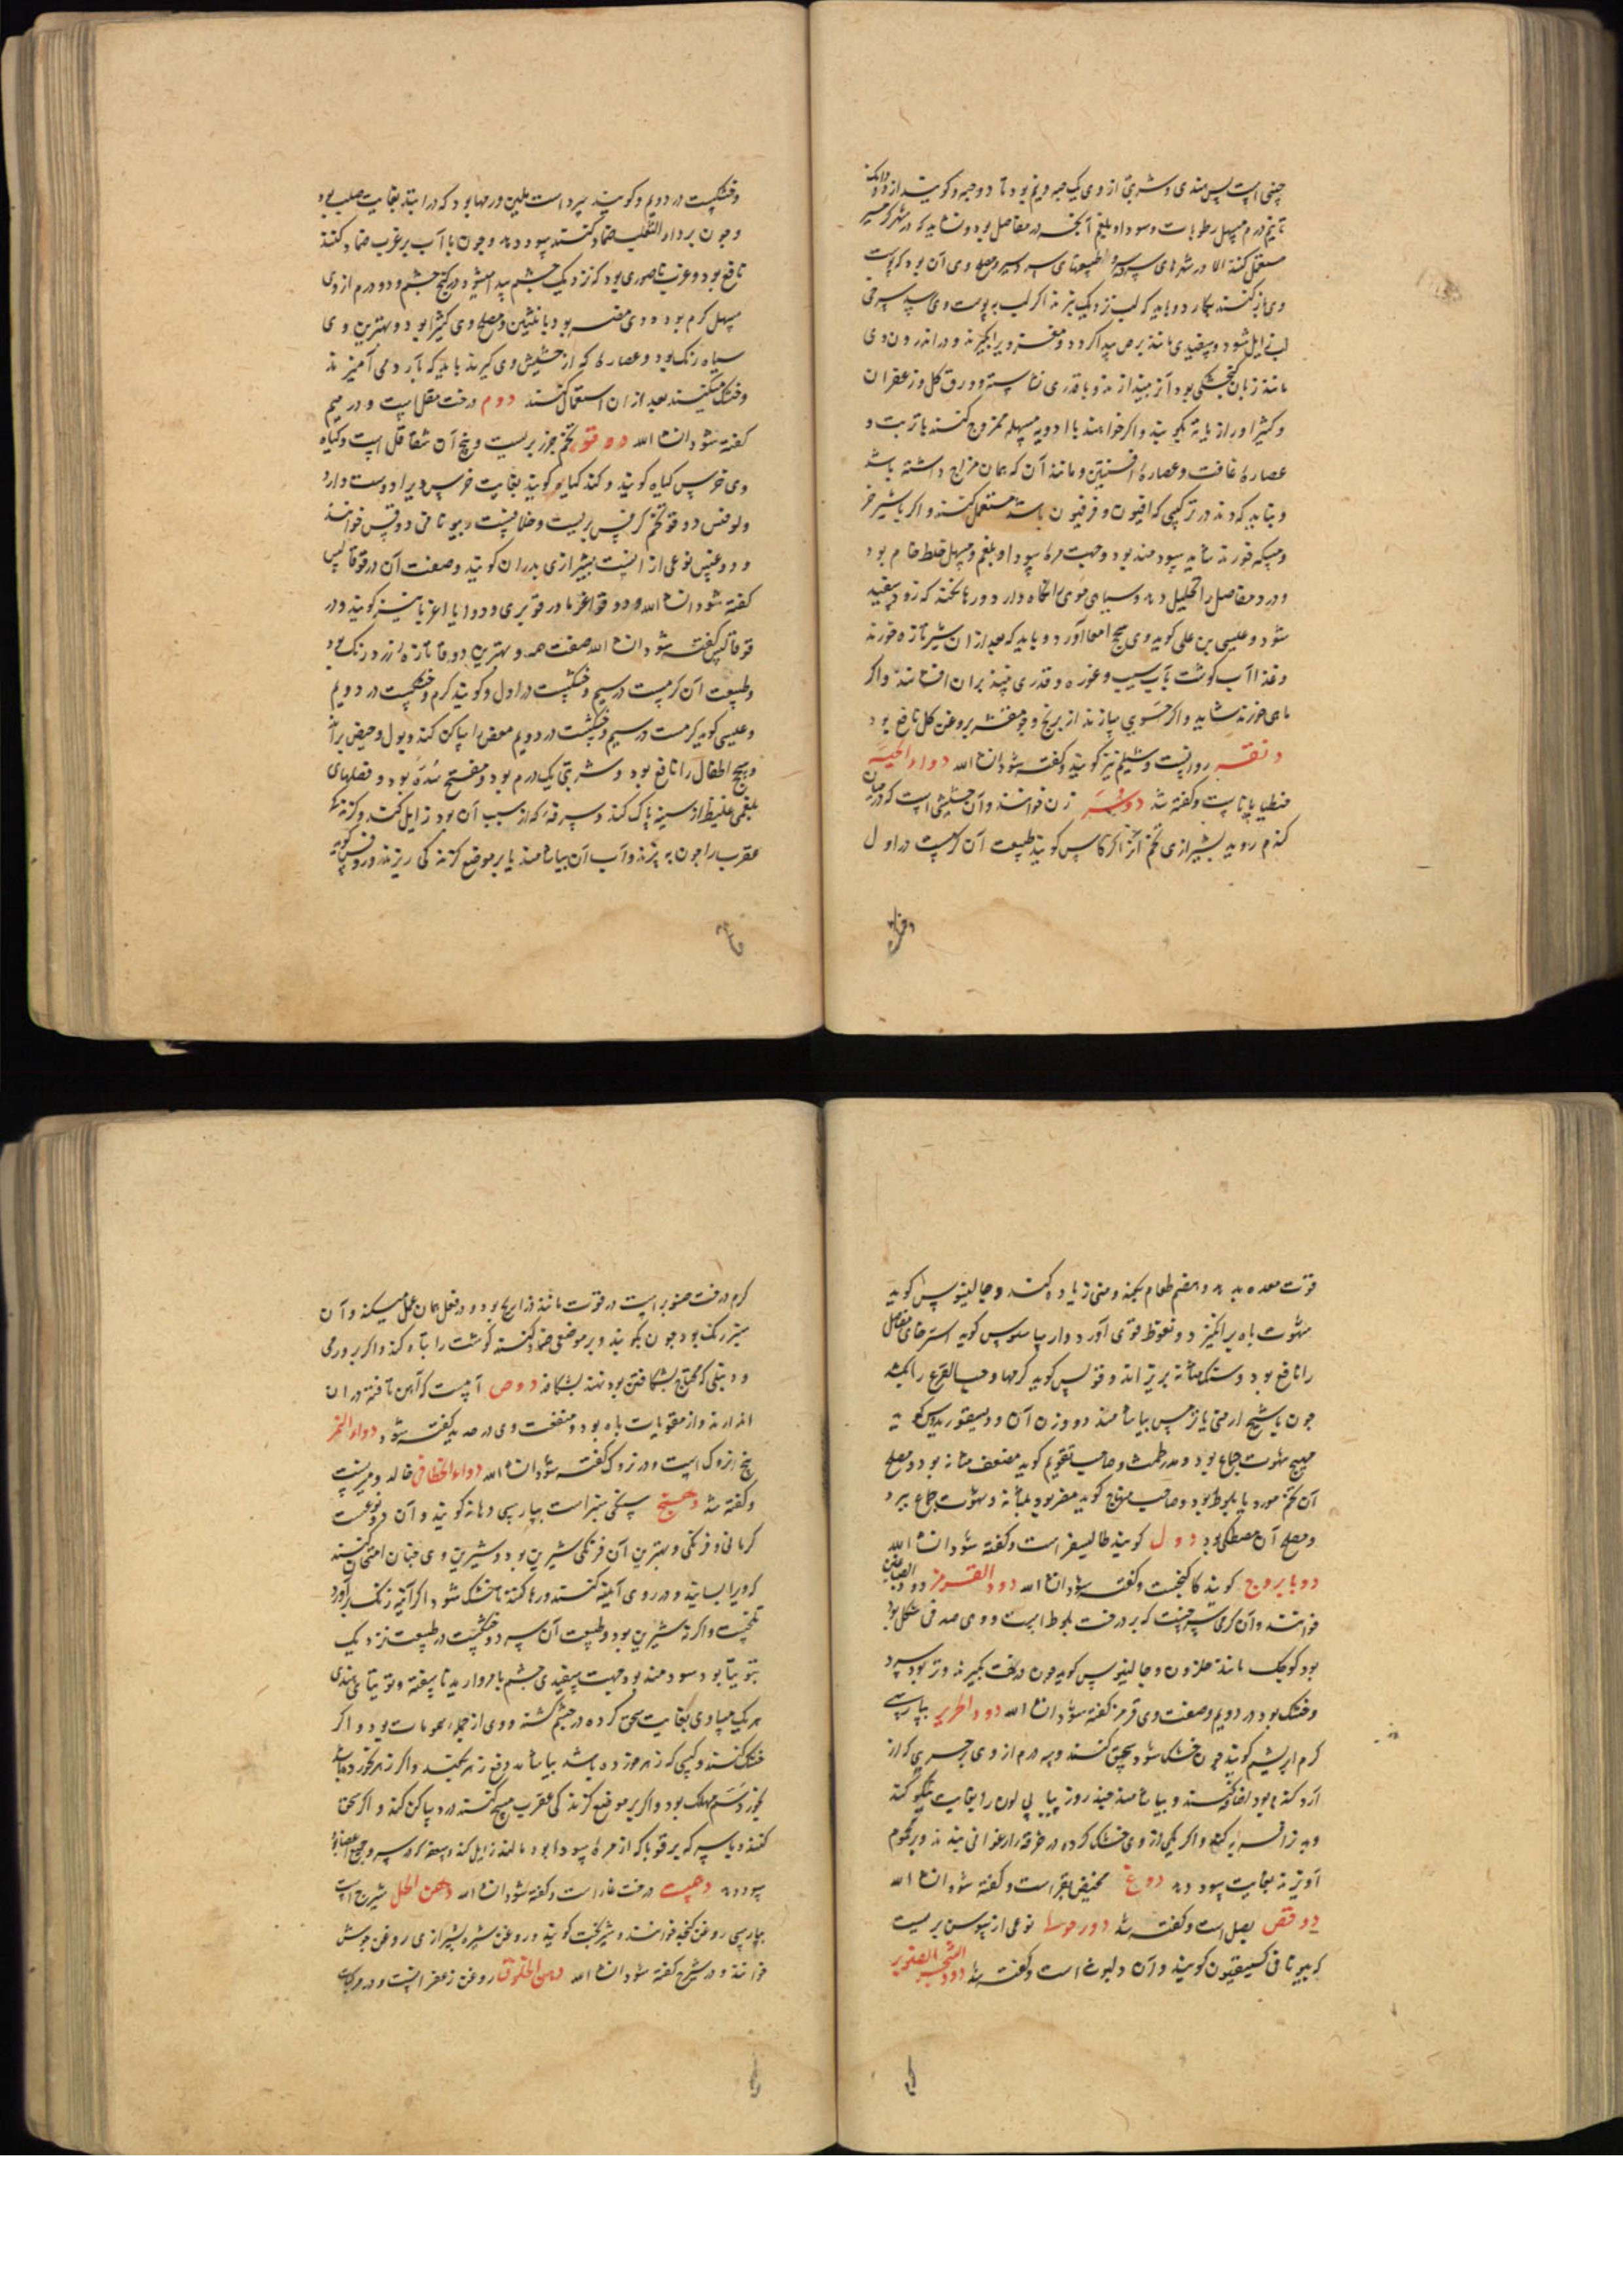 چینی است پس هندی و شربتی از وی یک حبه و نیم بود تا دو حبه و گویند از دو دانک
تا نیم درم مسهل رطوبات و سودا و بلغم آمیخته در مفاصل بود و نشاید که در شهر گرمسیر
مستعمل کنند الا در شهرهای سردسیر و طبیعتهای سرد و سیر و مصلح وی آن بود که پوست
وی باز کنند بکارد و باید که لب نزدیک نبرند اگر لب به پوست وی رسد سرخی
لب زایل شود و سفیدی مانند برص پیدا کردد و مغز ویرا بگیرند و در اندرون وی
مانند زبان گنجشکی بود آنرا بیندازند و با قدری نشاسته و ورق گل و زعفران
و کتیرا و رازیانه بکوبند و اگر خواهند با ادویه مسهله ممزوج کنند با تربد و
عصاره غافت و عصاره افسنتین و مانند آن که همان مزاج داشته باشد
و نباید که دند در ترکیبی که افیون و فرفیون باشد مستعمل کنند و اگر با شیر خر
و مسکه خورند شاید سودمند بود وجهت مره سودا و بلغم و مسهل خلط خام بود
و درد مفاصل را تحلیل دهد و سیاهی موی نگاه دارد و رها نکند که زود سفید
شود و عیسی بن علی گوید وی سحج امعا آورد و باید که بعد از آن شیر تازه خورند
و غذا آب گوشت بآب سیب و غوره و قدری پنبذ بران افشانند و اگر
ماهی خورند شاید و اگر حسوی سازند از برنج و جو مقشر بروغن گل نافع بود
دنقه زوانست و شیلم نیز گویند و گفته شود انشا الله دواء الحیه
جنطیانا است و گفته شد دوسر زن خوانند و آن حشیشی است که در میان
گندم روید بشیرازی تخم آنرا کرکاس گویند طبیعت آن گرمست در اول
و خشکست در دویم و گویند سرد است ملین ورمها بود که در ابتدا بغایت صلب بود
و چون بر داء الثعلب ضماد کنند سود دهد و چون با آب بر غرب ضماد کنند
نافع بود و غرب ناصوری بود که نزدیک چشم پیدا میشود در کنج چشم و دو درم از وی
مسهل کرم بود و وی مضر بود بانثیین و مصلح وی کثیرا بود و بهترین وی
سیاه رنک بود و عصاره که از حشیش وی گیرند باید که با آرد می آمیزند
و خشک میکنند بعد از ان استعمال کنند دوم درخت مقل است و در میم
گفته شود انشا الله دوقو تخم جزر بریست و بیخ آن شقاقل است و گیاه
وی خرس گیاه گویند و کند گیا و گویند بغایت خرس ویرا دوست دارد
و لوفس دوقو تخم کرفس بریست و خلافست و بیونانی دوقس خوانند
و دوقس نوعی از انست بشیرازی بدران گویند و صفت آن در قوقالس
گفته شود انشا الله و دوقو اغریا در قوبری و دوایا اغریا نیز گویند و در
قوقالس گفته شود انشا الله صفت همه و بهترین دوقا تازه زرد رنک بود
و طبیعت آن گرمست در سیم و خشکست در اول و گویند گرم و خشکست در دویم
و عیسی گوید گرمست در سیم و خشکست در دویم معض را ساکن کند و بول و حیض براند
و سحج اطفال را نافع بود و شربتی یک درم بود و مفتح سده بود و فضلهای
بلغمی غلیظ از سینه پاک کند و سرفه که از سبب آن بود زایل کند و گزندگی
عقرب را چون بپزند و آب آن بیاشامند یا بر موضع گزندگی ریزند و روفس گوید
قوت معده بدهد و هضم طعام بکند و منی زیاده کند و جالینوس گوید
شهوت باه برانگیزد و نعوظ قوی آورد و ارسیاسلوس گوید استرخای مفاصل
را نافع بود و سنک مثانه بریزاند و فولس گوید کرمها و حب القرع را بکشد
چون با شیح ارمنی یا ترمس بیاشامند دو وزن آن و دیسقوریدس گوید
مهیج شهوت جماع بود و مدر طمث و صاحب تقویم گوید مضعف مثانه بود و مصلح
آن تخم مورد یا بلوط بود و صاحب منهاج گوید مضر بود بمثانه و شهوت جماع ببرد
و مصلح آن مصطکی بود دول گویند طالیسفر است و گفته شود انشا الله
دوبا بروج گویند کاکنجست و گفته شود انشا الله دود القرمز دود الصباغین
خوانند و آن کرمی سرخست که بر درخت بلوط است و وی صدفی شکل بود
بود کوچک مانند حلزون و جالینوس گوید چون درخت بگیرند و تر بود سرد
و خشک بود در دویم و صفت وی در قرمز گفته شود انشا الله دود الحریر بپارسی
کرم ابریشم گویند چون خشک شود سحق کنند و سه درم از وی بر حریری که از
آرد کنده بود اضافه کنند و بیاشامند چند روز پیاپی لون را بغایت نیکو کند
و بدن را فربه کند و اگر یکی از وی خشک کرده در خرقه ارغوانی بندند و بر محموم
آویزند بغایت سود دهد دوغ مخیض البقر است و گفته شود انشا الله
دوقص بصل است و گفته شد دورحوسا نوعی از سوسن بریست
که بیونانی کسیفیون گویند و آن دلبوث است و گفته شد دود الشجر الصنوبر
کرم درخت صنوبر است در قوت مانند ذراریح بود و در فعل همان عمل میکند و آن
سبز رنک بود چون بکوبند و بر موضعی ضماد کنند گوشت را تباه کند و اگر بر ورمی
و دنبلی که محتاج شکافتن بود نهند بشکافد دوص آبیست که آهن تافته در ان
اندازند و از مقویات باه بود و منفعت وی در حدید گفته شود دواء الخمر
بیخ انزوک است و در نزوک گفته شود انشا الله دواء الخطاطیف خالدومیونست
و گفته شد دهنج سنگی سبز است بپارسی دهانه گویند و آن دو نوعست
کرمانی و فرنگی و بهترین آن فرنگی شیرین بود و شیرین وی چنان امتحان کنند
که ویرا بسایند و در روی آئینه کنند و رها کنند تا خشک شود اگر آئینه زنک برآورد
تلخست و اگر نه شیرین بود و طبیعت آن سرد و خشکست در طبیعت نزدیک
بتوتیا بود سودمند بود جهت سفیدی چشم با مروارید ناسفته و توتیای هندی
هر یک مساوی بغایت سحق کرده در چشم کشند و وی از جمله سمومات بود و اگر
خشک کنند و کسی که زهر خورده باشد بیاشامد دفع زهر بکند و اگر زهر نخورده باشد
بخورد سم مهلک بود و اگر بر موضع گزندگی عقرب مسح کنند درد ساکن کند و اگر سحق
کنند و با سرکه بر قوبا که از مره سودا بود بمالند زایل کند و سعفه که در سر و جمیع اعضا بود
سود دهد دهمست درخت غار است و گفته شود انشا الله دهن الحل شیرج است
بپارسی روغن کنجد خوانند و شیر بخت گویند و روغن شیره بشیرازی روغن خوش
خوانند و در شیرج گفته شود انشا الله دهن الخلوق روغن زعفرانست و در مرکبات